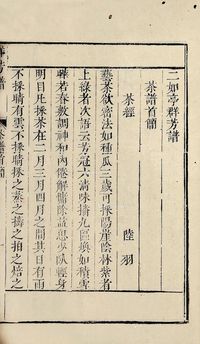 二如亭群芳譜
茶譜首簡
茶經 陸羽
藝茶欲密法如種瓜三歲可採陽崖陰林紫者
上綠者次語云芳冠六清味播九區煥如積雪
曄若春敷調神和內倦解慵除益思少臥輕身
明目凡採茶在二月三月四月之間其日有雨
不採晴有雲不採晴採之蒸之擣之拍之焙之